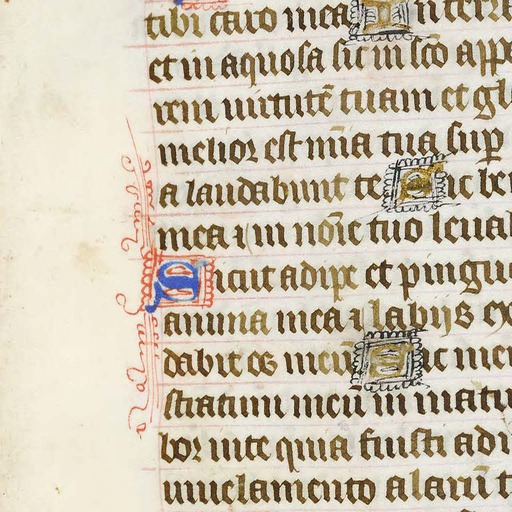 tibi caro mea In terra
et in aquosa sic in sc̄o appa
rem uirtutē tuam et gl
melior est mīa tua sup
a laudabunt te Sic be
mea ⁊ in nōīe tuo leua
Sicut adipe et pingu
anima mea ⁊ labijs ex
dabit os meū Sic me
stratum meū in matu
bor in te quia fuisti adi
in uelamento alarū t